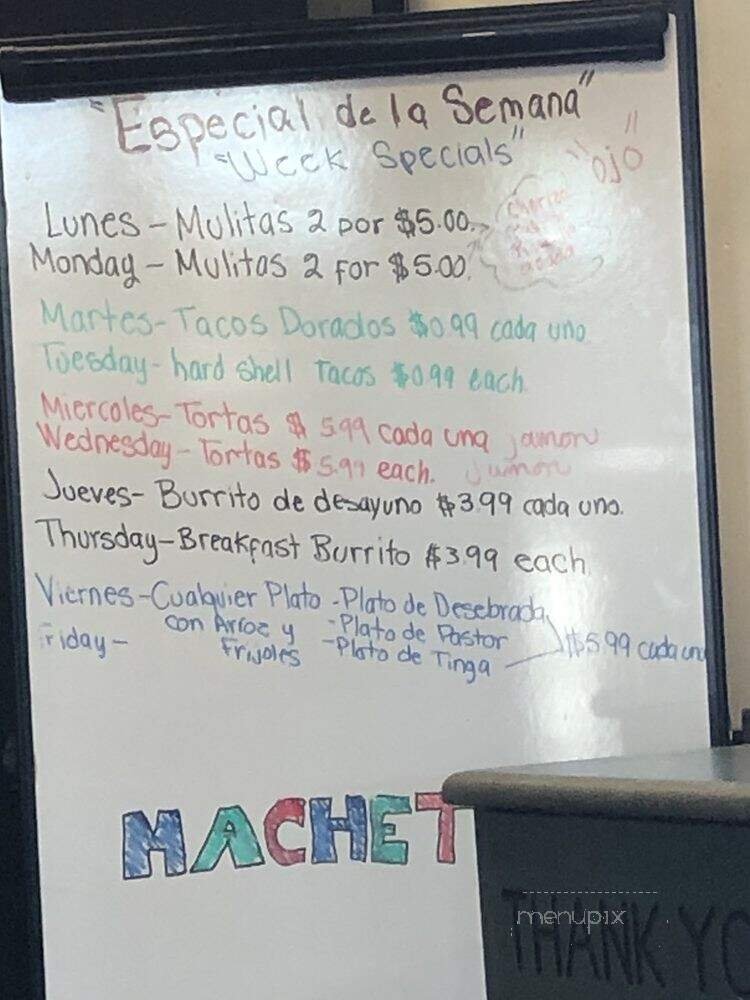 "Especial de la Semana"
"Week Specials"
"ojo"
Lunes - Mulitas 2 por $5.00.
Monday - Mulitas 2 for $5.00.
Martes - Tacos Dorados $0.99 cada uno
Tuesday - hard shell Tacos $0.99 each.
Miercoles - Tortas $ 5.99 cada una jamon
Wednesday - Tortas $5.99 each. Jamon
Jueves - Burrito de desayuno $3.99 cada uno.
Thursday - Breakfast Burrito $3.99 each.
Viernes - Cualquier Plato - Plato de Desebrada
con Arroz y - Plato de Pastor
Friday - Frijoles - Plato de Tinga $5.99 cada uno
MACHET
menupix
THANK YO